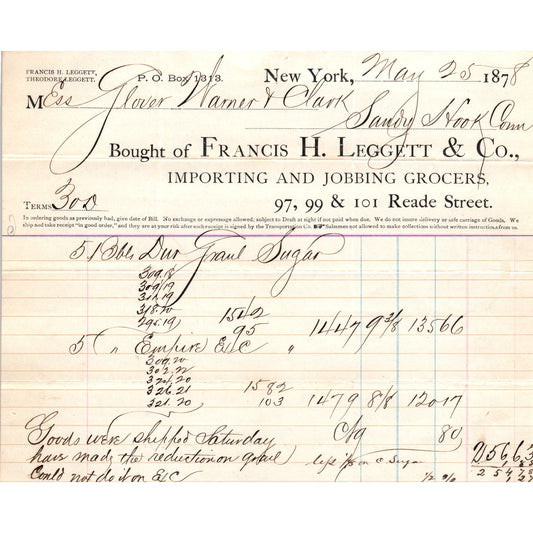 FRANCIS H. LEGGETT,
THEODORE LEGGETT.
P. O. Box 1313.
New York, May 25 1878
Mess Glover Warner & Clark
Sandy Hook Conn
Bought of FRANCIS H. LEGGETT & Co.,
IMPORTING AND JOBBING GROCERS,
TERMS 30 D
97, 99 & 101 Reade Street.
In ordering goods as previously had, give date of Bill. No exchange or expressage allowed; subject to Draft at sight if not paid when due. We do not insure delivery or safe carriage of Goods. We
ship and take receipt "in good order," and they are at your risk after each receipt is signed by the Transportation Co. Salesmen not allowed to make collections without written instruction
5 Bbls Gran Sugar
309.18
309.19
312.19
318.20
295.19 1542
95 1447 9 3/8 135 66
5 " Empire Ex C "
309.20
302.22
324.20
326.21 1582
321.20 103 1479 8 1/8 120 17
Ctg 80
Goods were shipped Saturday 256,63
have made the reduction on gran
on C. Sugar
Could not do it on Ex C
1/2 %